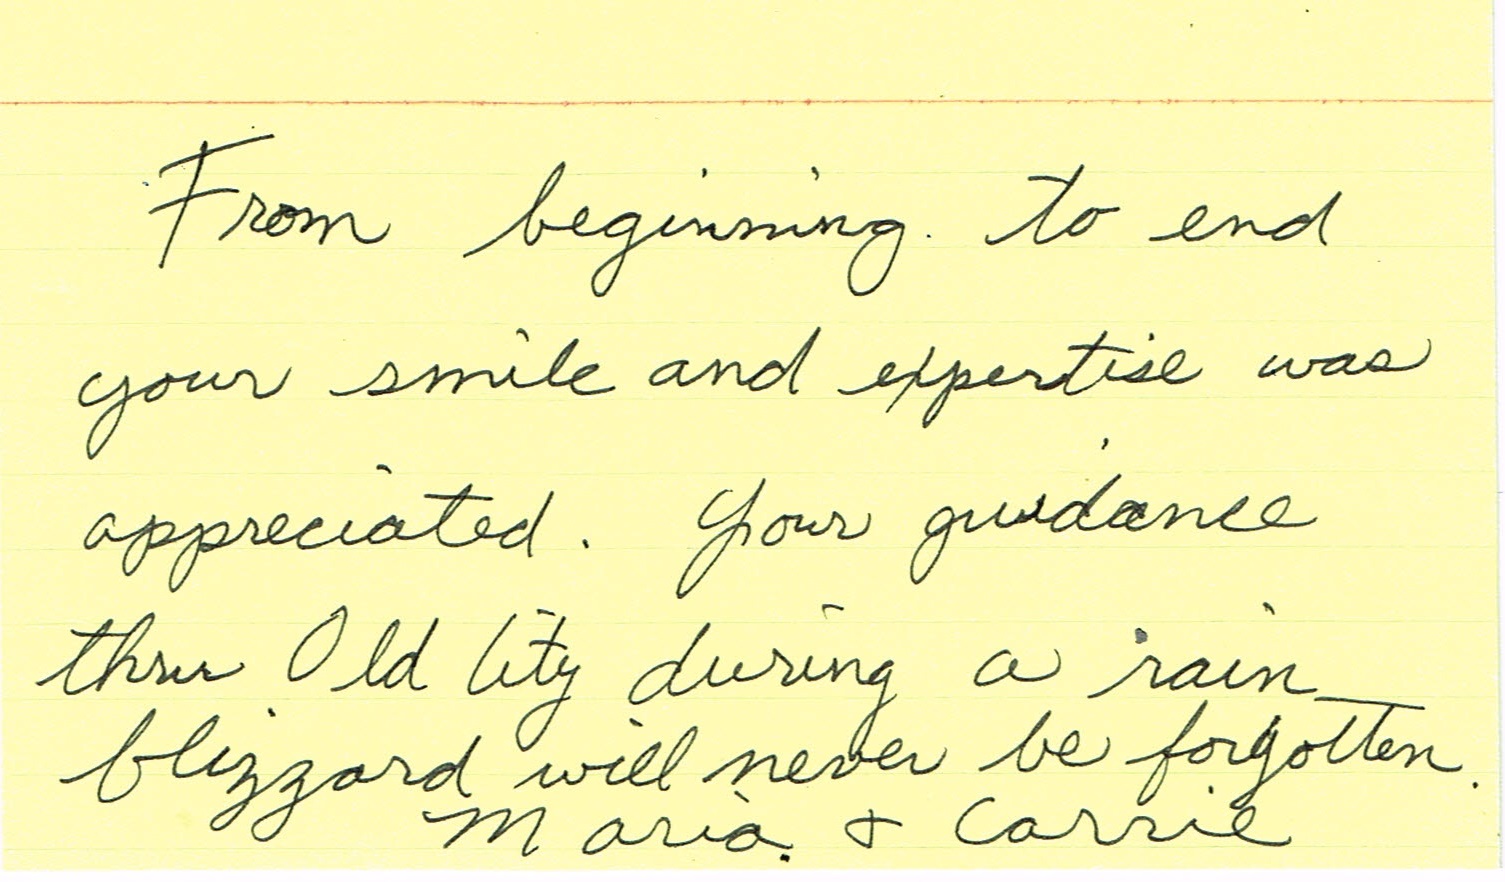 From beginning to end
your smile and expertise was
appreciated. Your guidance
thru Old City during a rain
blizzard will never be forgotten.
Maria & Carrie